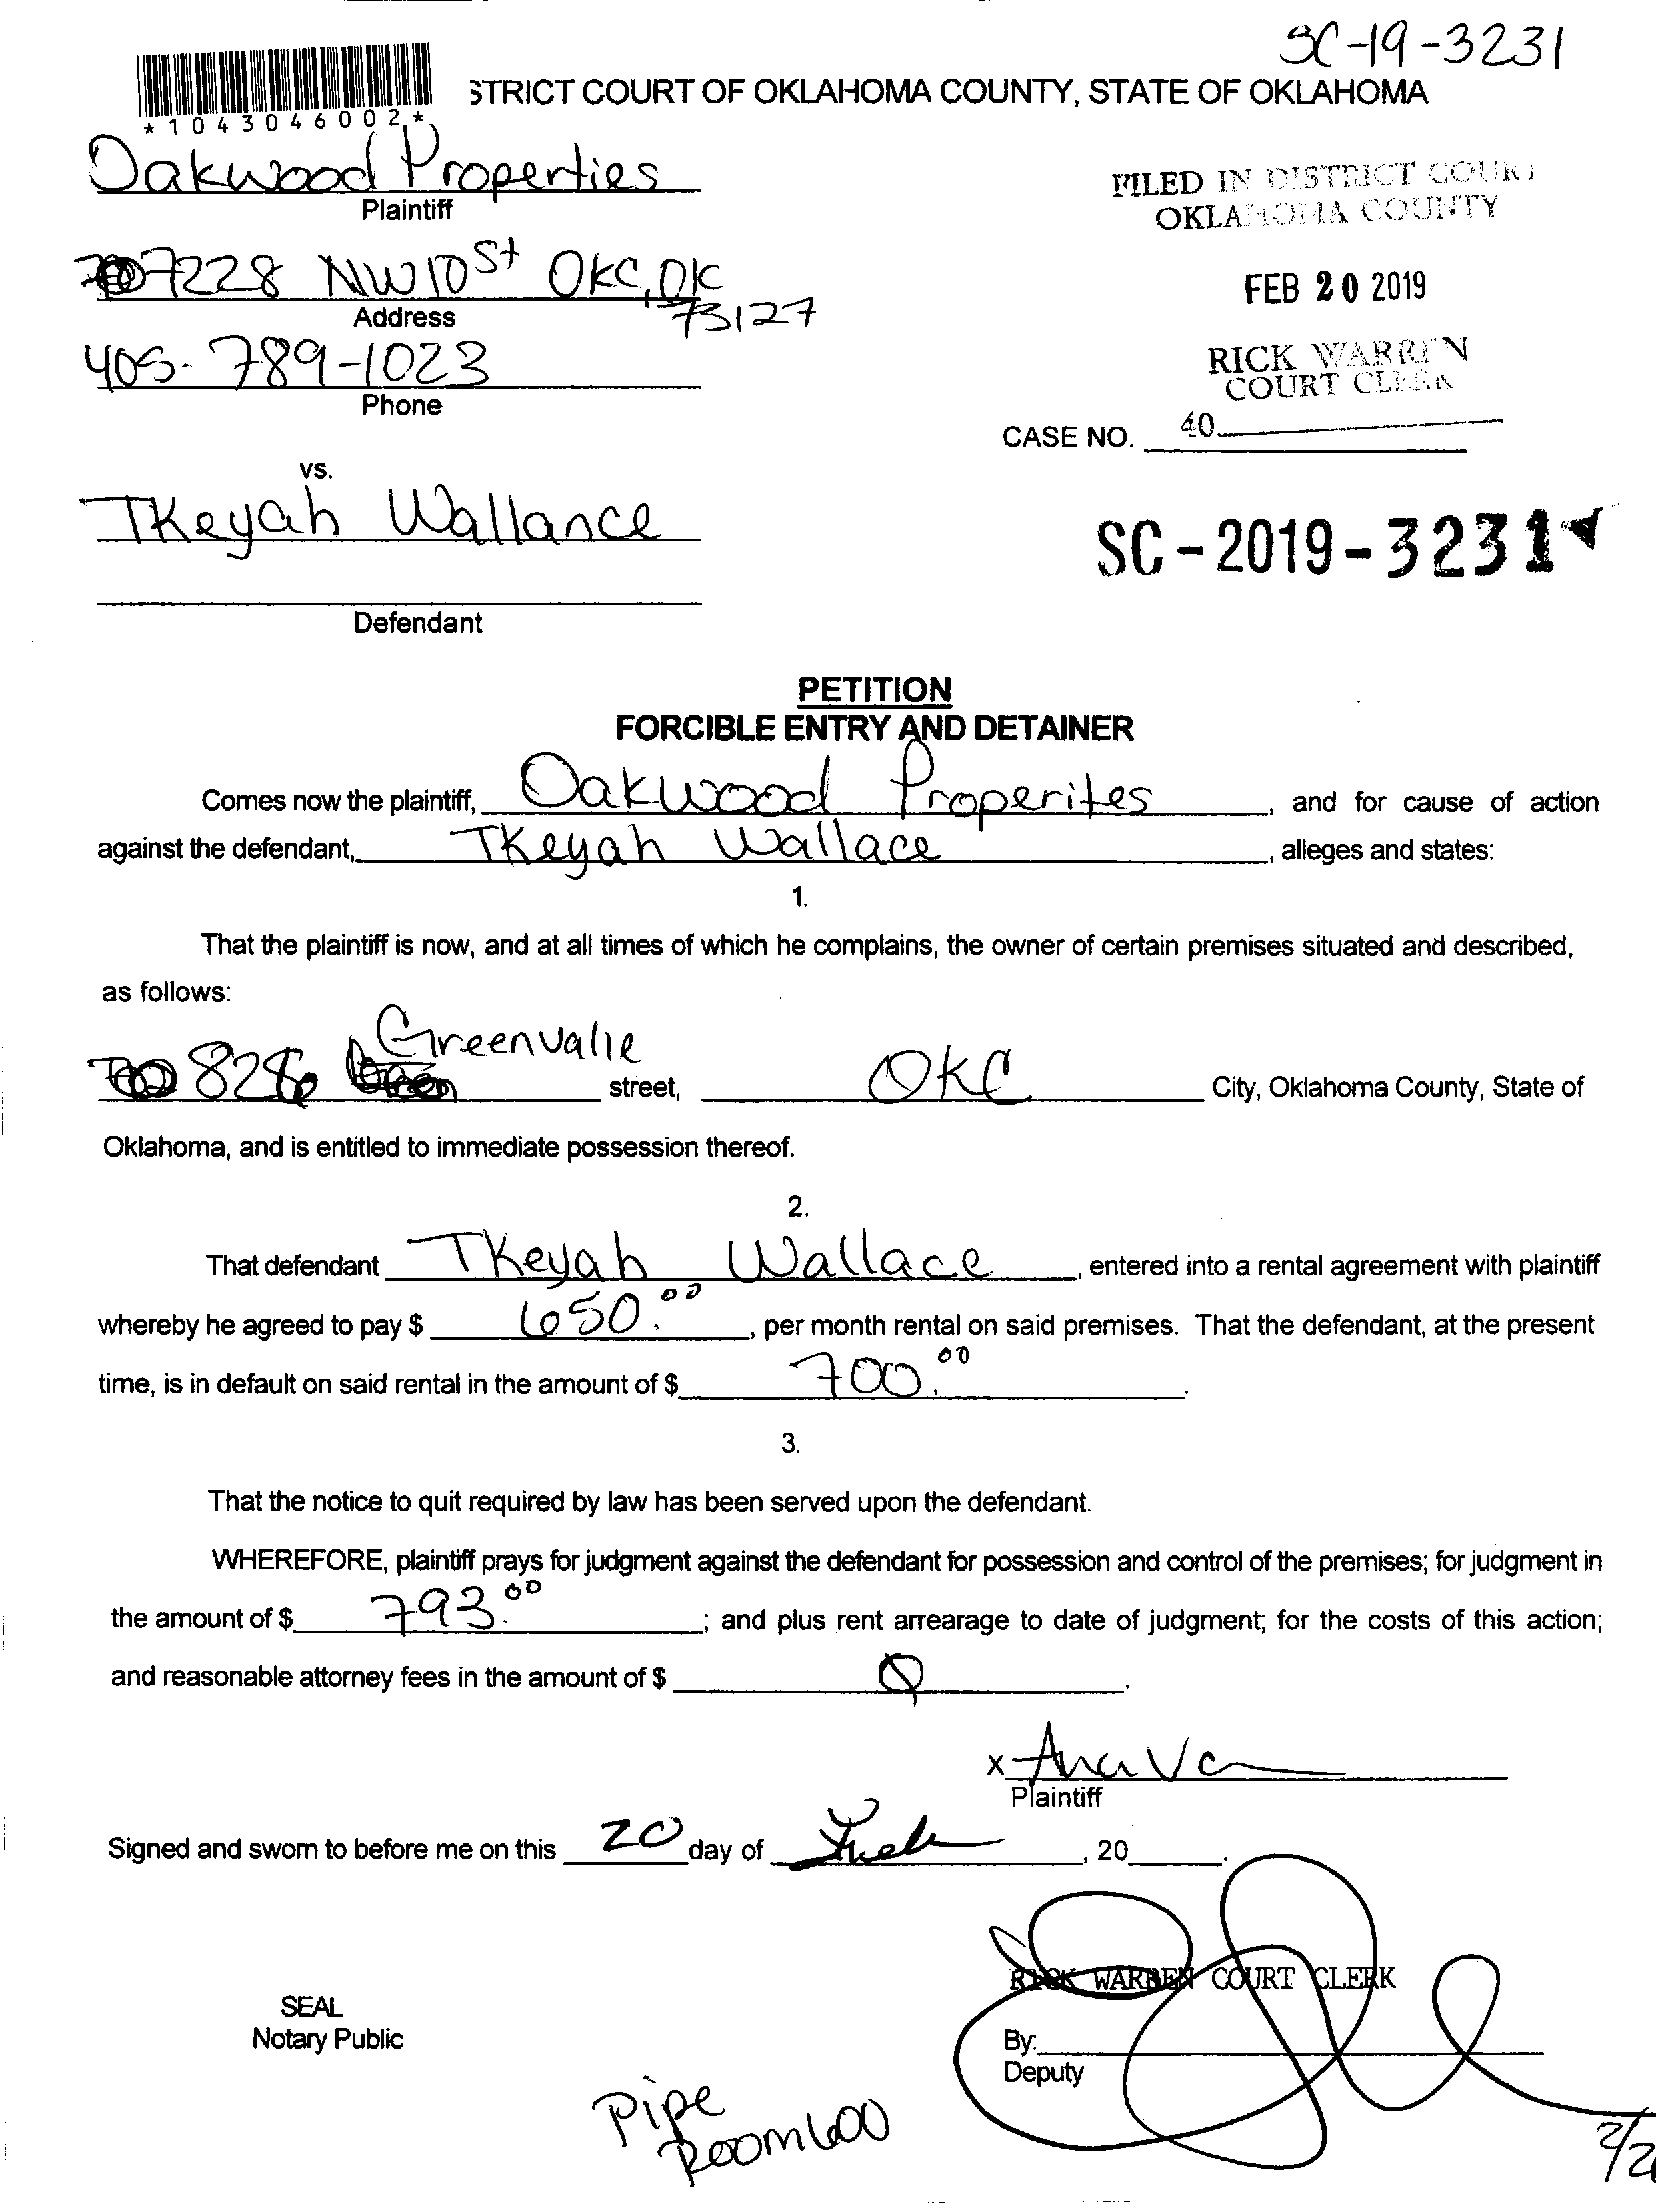 SC-19-3231
STRICT COURT OF OKLAHOMA COUNTY, STATE OF OKLAHOMA
*1043046002*
Oakwood Properties
Plaintiff
FILED IN DISTRICT COURT
OKLAHOMA COUNTY
7228 NW 10 St OKC, OK
73127
Address
FEB 20 2019
405-789-1023
Phone
RICK WARREN
COURT CLERK
CASE NO. 40
vs.
TKeyah Wallance
SC-2019-3231
Defendant
PETITION
FORCIBLE ENTRY AND DETAINER
Comes now the plaintiff, Oakwood Properites, and for cause of action
against the defendant, TKeyah Wallace, alleges and states:
1.
That the plaintiff is now, and at all times of which he complains, the owner of certain premises situated and described,
as follows:
826 Greenvalie street, OKC City, Oklahoma County, State of
Oklahoma, and is entitled to immediate possession thereof.
2.
That defendant TKeyah Wallace, entered into a rental agreement with plaintiff
whereby he agreed to pay $ 650.00, per month rental on said premises. That the defendant, at the present
time, is in default on said rental in the amount of $ 700.00.
3.
That the notice to quit required by law has been served upon the defendant.
WHEREFORE, plaintiff prays for judgment against the defendant for possession and control of the premises; for judgment in
the amount of $ 793.00; and plus rent arrearage to date of judgment; for the costs of this action;
and reasonable attorney fees in the amount of $
x Ana
Plaintiff
Signed and sworn to before me on this 20 day of Feb, 20
RICK WARREN COURT CLERK
SEAL
Notary Public
By:
Deputy
Pipe
Room 600